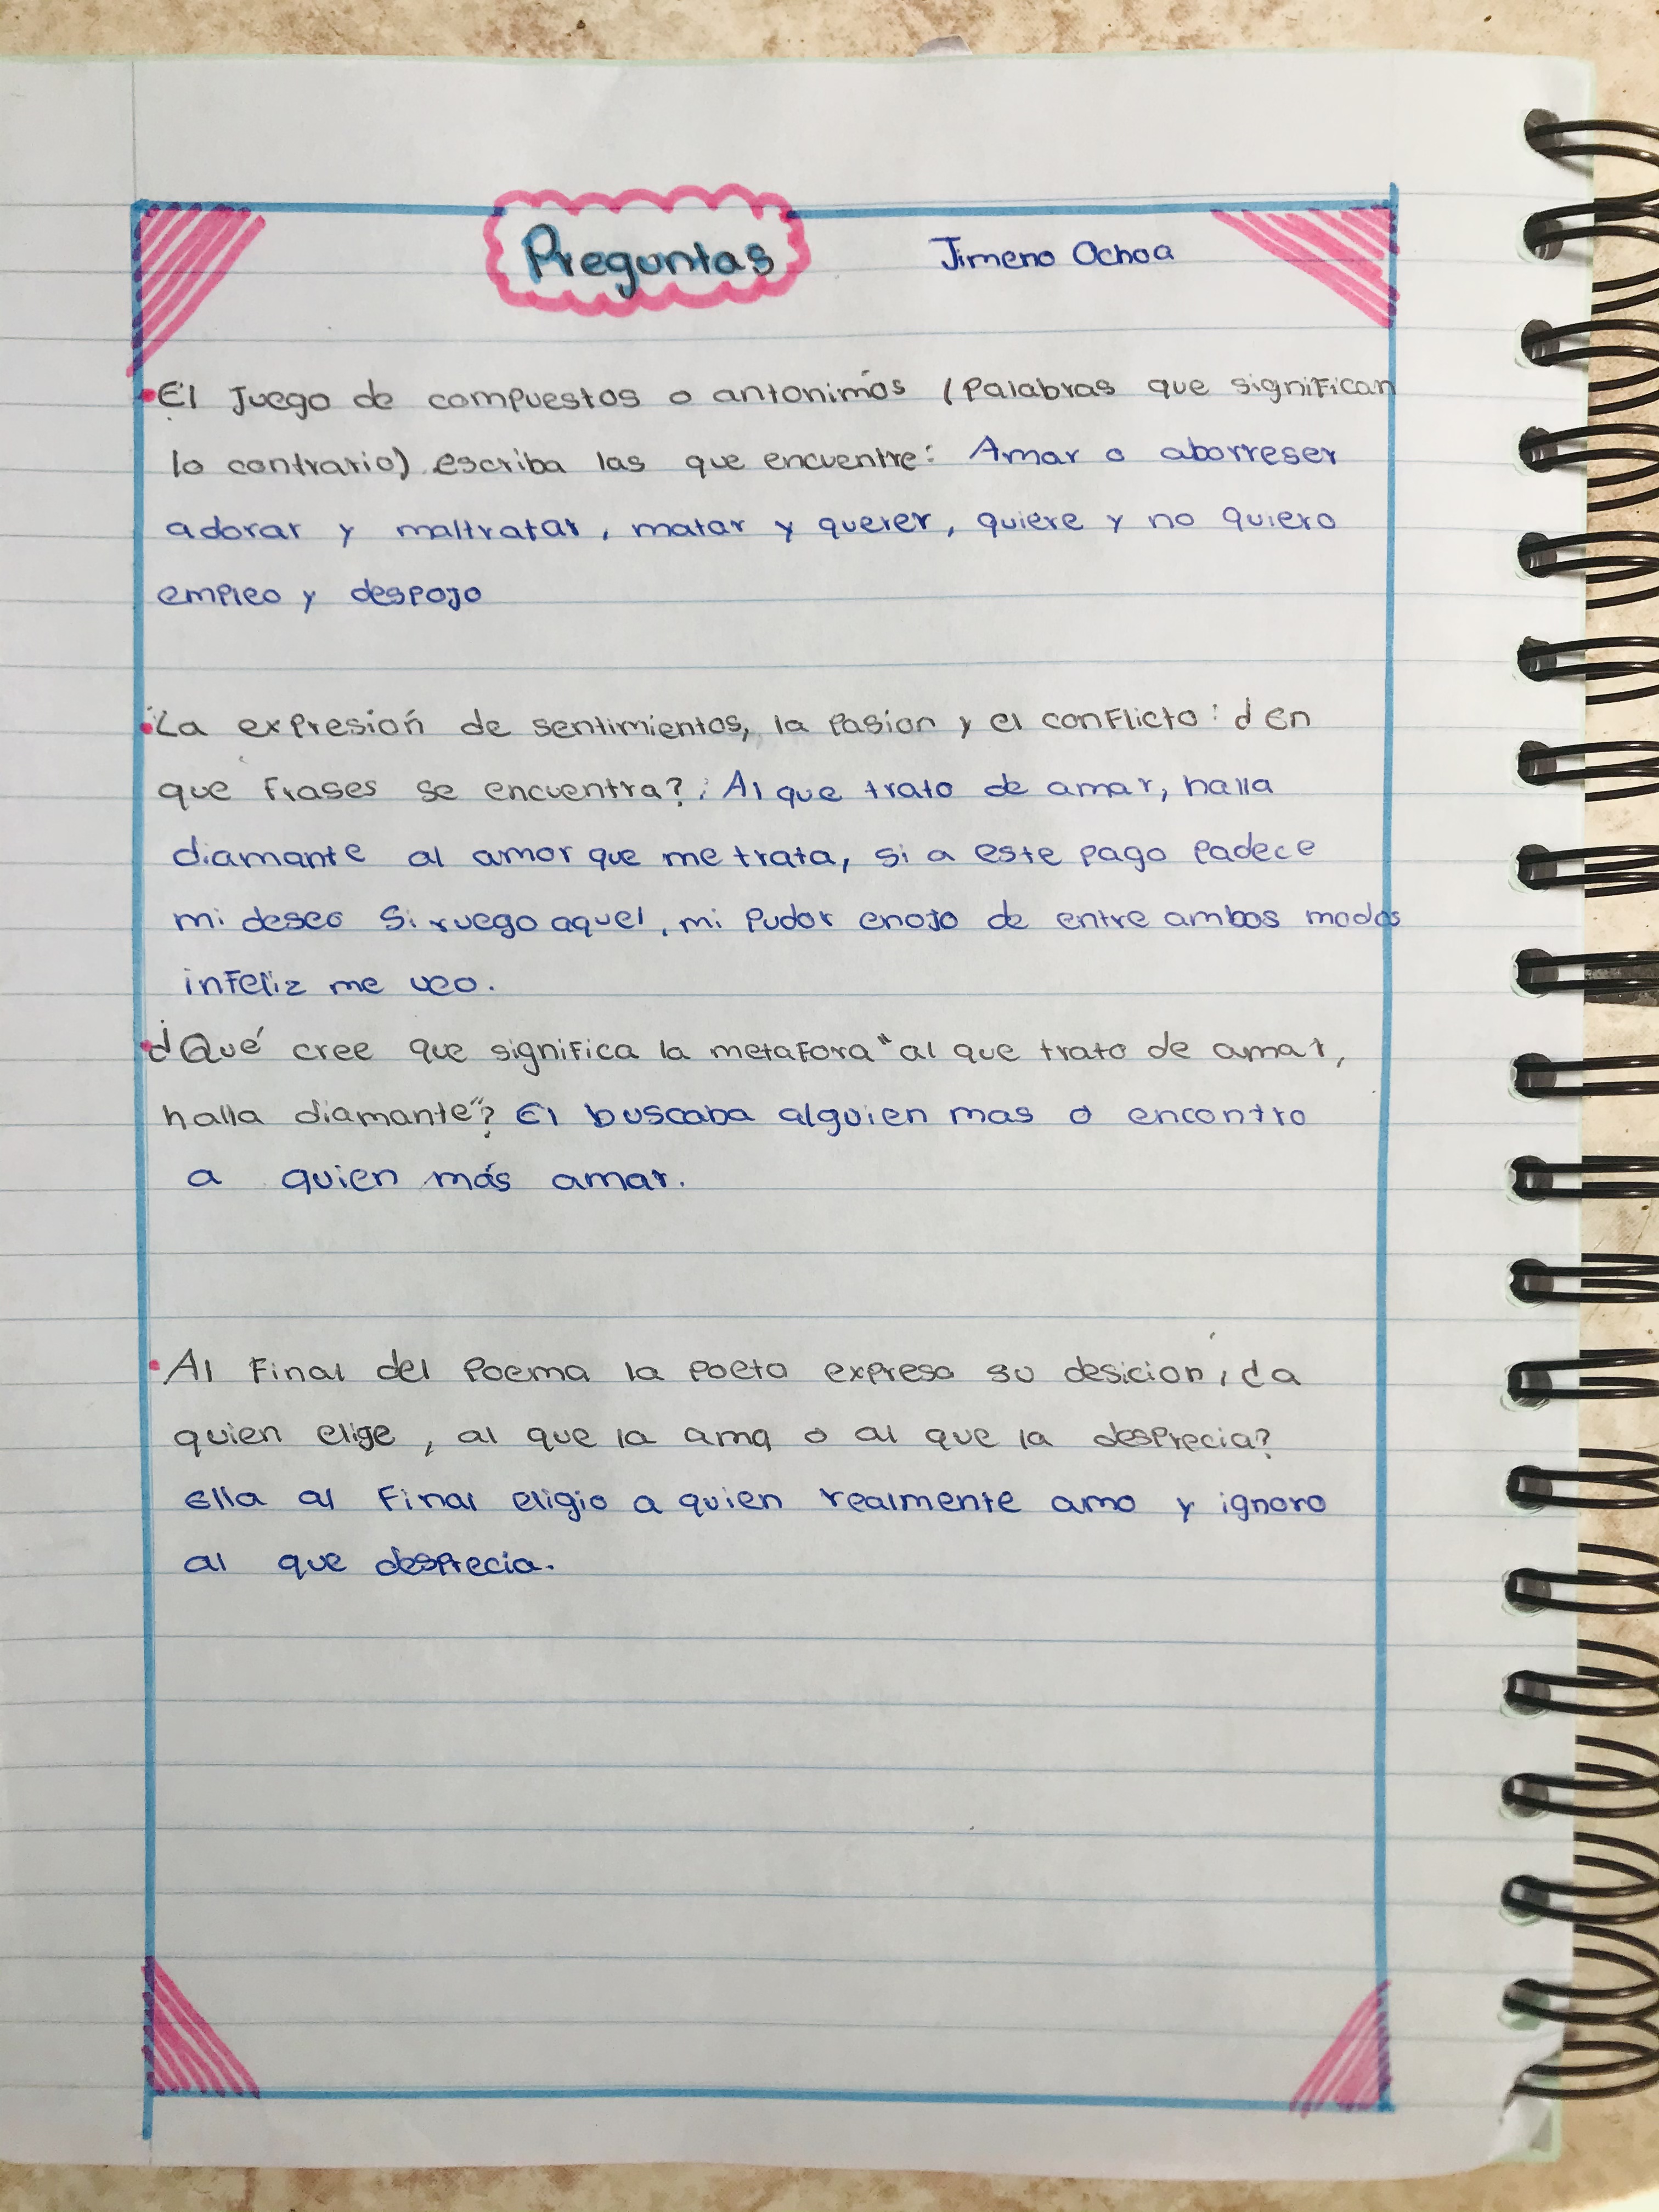 Preguntas
Jimena Ochoa
• El Juego de compuestos o antonimós (Palabras que significan
lo contrario) escriba las que encuentre: Amar o aborreser
adorar y maltratar, matar y querer, quiere y no quiero
empleo y despojo
• La expresión de sentimientos, la Pasion y el conflicto: ¿En
que frases se encuentra?: Al que trato de amar, halla
diamante al amor que me trata, si a este pago Padece
mi deseo Si ruego aquel, mi Pudor enojo de entre ambos modos
infeliz me veo.
• ¿Qué cree que significa la metafora "al que trato de amar,
halla diamante"? El buscaba alguien mas o encontro
a quien más amar.
• Al Final del Poema la Poeta expresa su desicion, ¿a
quien elige, al que la ama o al que la desprecia?
Ella al Final eligio a quien realmente amo y ignoro
al que desprecia.